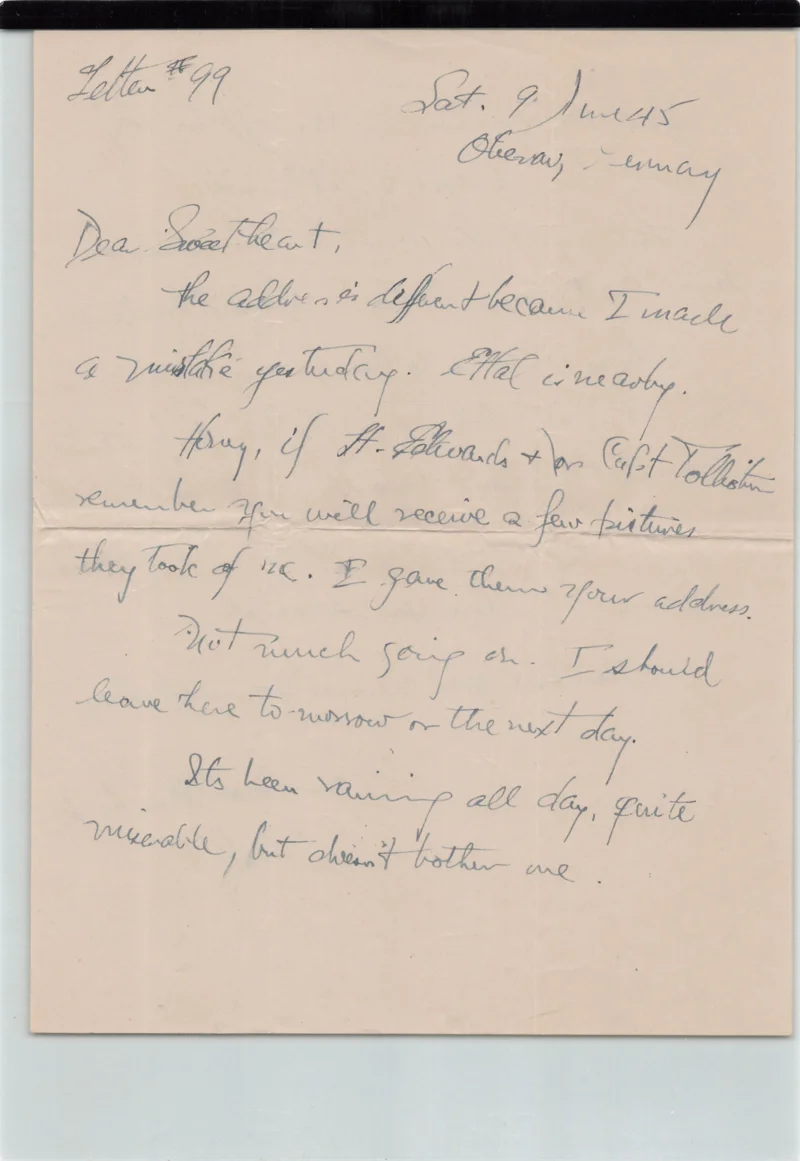 Letter # 99
Sat. 9 June 45
Oberau, Germany
Dear Sweetheart,
The address is different because I made
a mistake yesterday. Ettal is nearby.
Honey, if Lt. Edwards + / or Capt
remember you will receive a few pictures
they took of me. I gave them your address.
Not much going on. I should
leave here to-morrow or the next day.
Its been raining all day, quite
miserable, but doesn't bother me.